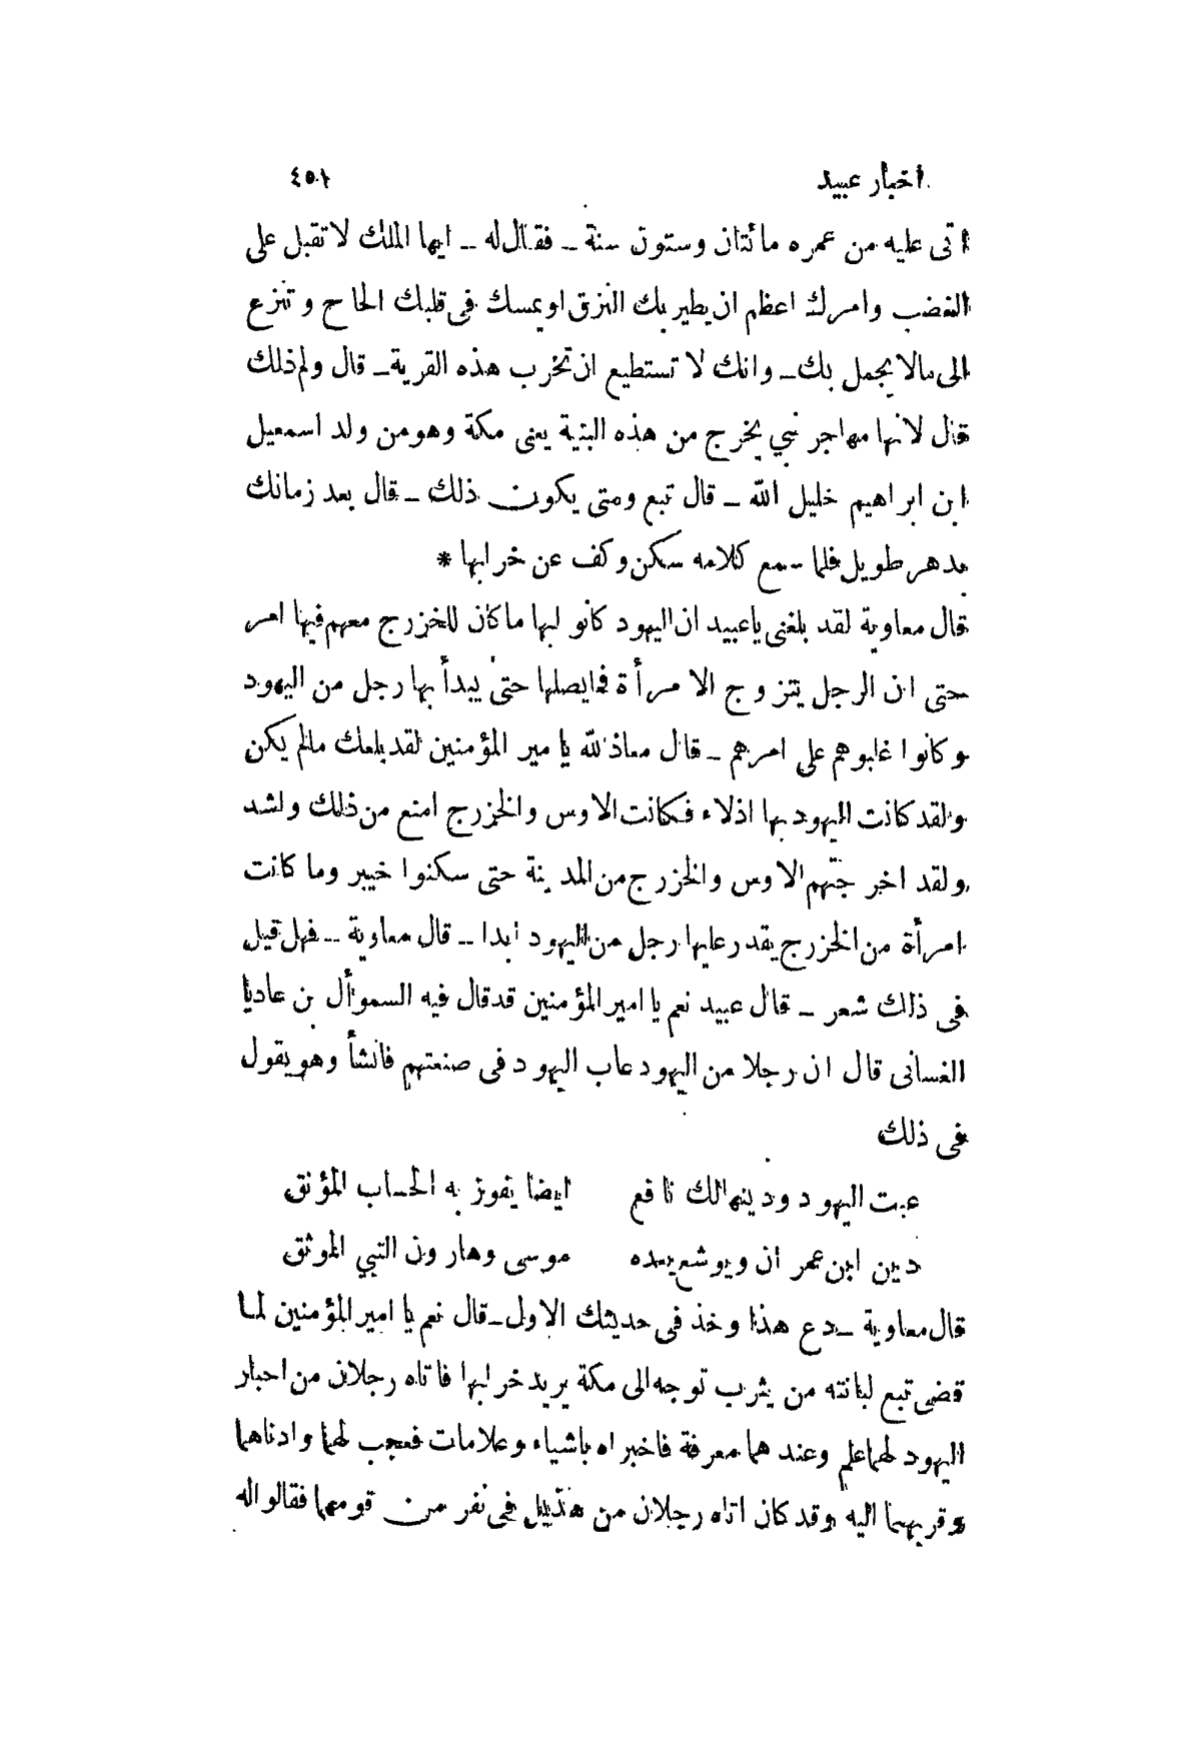 اخبار عبيد ٤٥١
اتى عليه من عمره مائتان وستون سنة ـ فقال له ـ ايها الملك لا تقبل على
الغضب وامرك اعظم ان يطير بك النزق او يمسك فى قلبك الحاح و تنزع
الى مالا يجمل بك ـ وانك لا تستطيع ان تخرب هذه القرية ـ قال ولم ذلك
قال لانها مهاجر نبي يخرج من هذه البنية يعنى مكة وهو من ولد اسمعيل
ابن ابراهيم خليل الله ـ قال تبع ومتى يكون ذلك ـ قال بعد زمانك
بدهر طويل فلما سمع كلامه سكن وكف عن خرابها *
قال معاوية لقد بلغنى يا عبيد ان اليهود كانو لبها ما كان للخزرج معهم فيها امر
حتى ان الرجل يتزوج الامرأة فما يصلها حتى يبدأ بها رجل من اليهود
وكانوا غلبوهم على امرهم ـ قال معاذ الله يا مير المؤمنين لقد بلغك مالم يكن
ولقد كانت اليهود بها اذلاء فكانت الاوس والخزرج امنع من ذلك واشد
ولقد اخرجتهم الاوس والخزرج من المدينة حتى سكنوا خيبر وما كانت
امرأة من الخزرج يقدر عليها رجل من اليهود ابدا ـ قال معاوية ـ فهل قيل
فى ذلك شعر ـ قال عبيد نعم يا امير المؤمنين قد قال فيه السموأل بن عاديا
الغسانى قال ان رجلا من اليهود عاب اليهود فى صنعتهم فانشأ وهو يقول
فى ذلك
عبت اليهود ودينها لك نافع ايضا يفوز به الحساب المؤنق
دين ابن عمران ويوشع بعده موسى وهارون النبي الموثق
قال معاوية ـ دع هذا وخذ فى حديثك الاول ـ قال نعم يا امير المؤمنين لما
قضى تبع لبانته من يثرب توجه الى مكة يريد خرابها فاتاه رجلان من احبار
اليهود لهما علم وعندهما معرفة فاخبراه باشياء وعلامات فعجب لهما وادناهما
وقربهما اليه وقد كان اتاه رجلان من هذيل فى نفر من قومهما فقالوا له